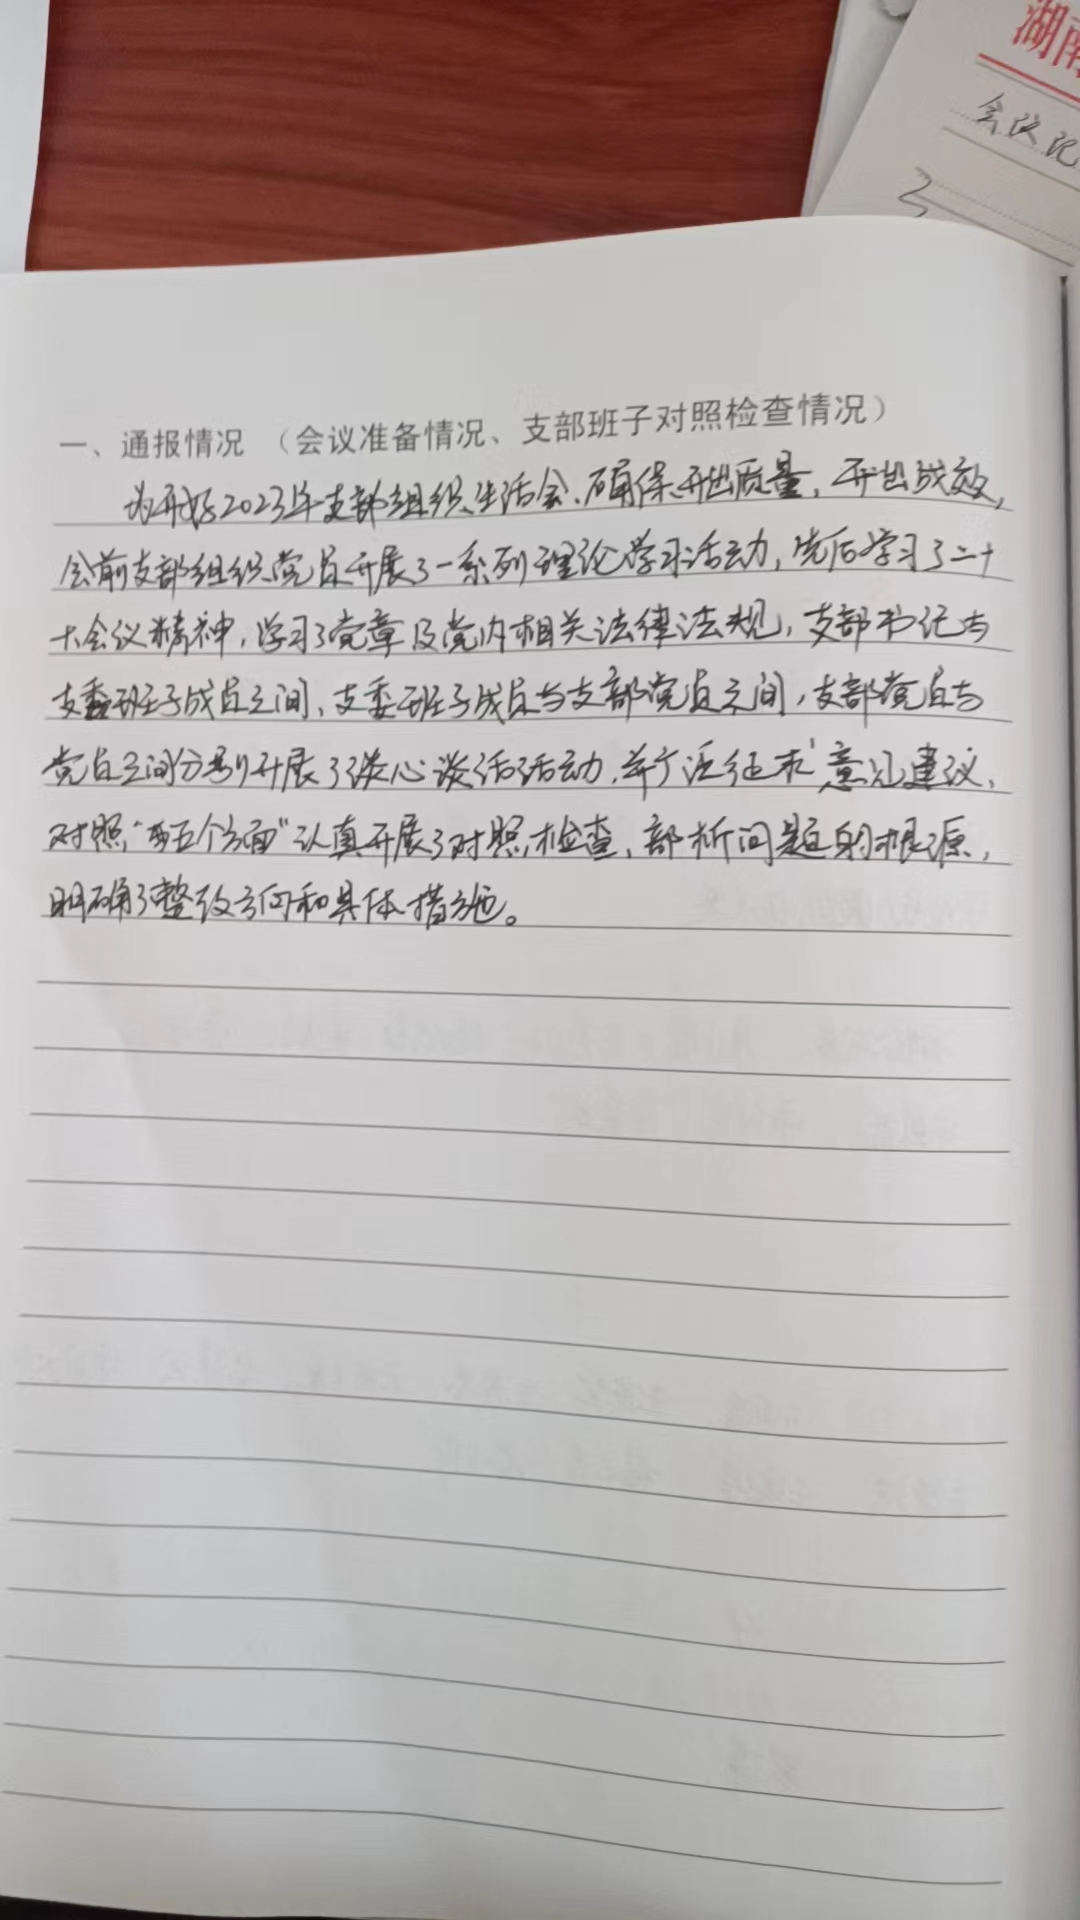 湖南
会议记
一、通报情况 （会议准备情况、支部班子对照检查情况）
为开好2023年支部组织生活会、确保开出质量，开出成效，
会前支部组织党员开展了一系列理论学习活动，先后学习了二十
大会议精神，学习了党章及党内相关法律法规，支部书记与
支委班子成员之间、支委班子成员与支部党员之间，支部党员与
党员之间分别开展了谈心谈话活动，并广泛征求意见建议，
对照“五个方面”认真开展了对照检查，部析问题的根源，
明确了整改方向和具体措施。